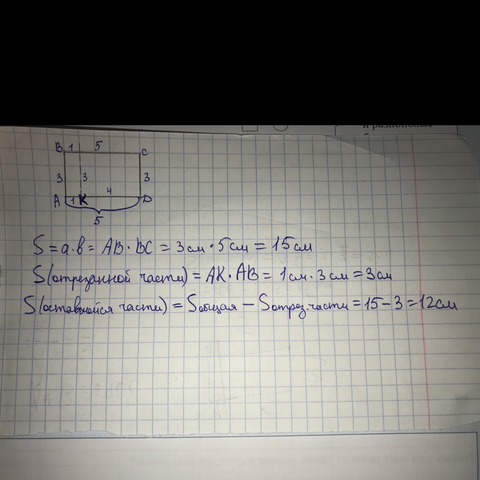 B 1 5 C
3 3 3
A 1 K 4 D
5
S = a·b = AB·BC = 3см·5см = 15см
S(отрезанной части) = AK·AB = 1см·3см = 3см
S(оставшейся части) = Sобщая − Sотрез.части = 15−3 = 12см